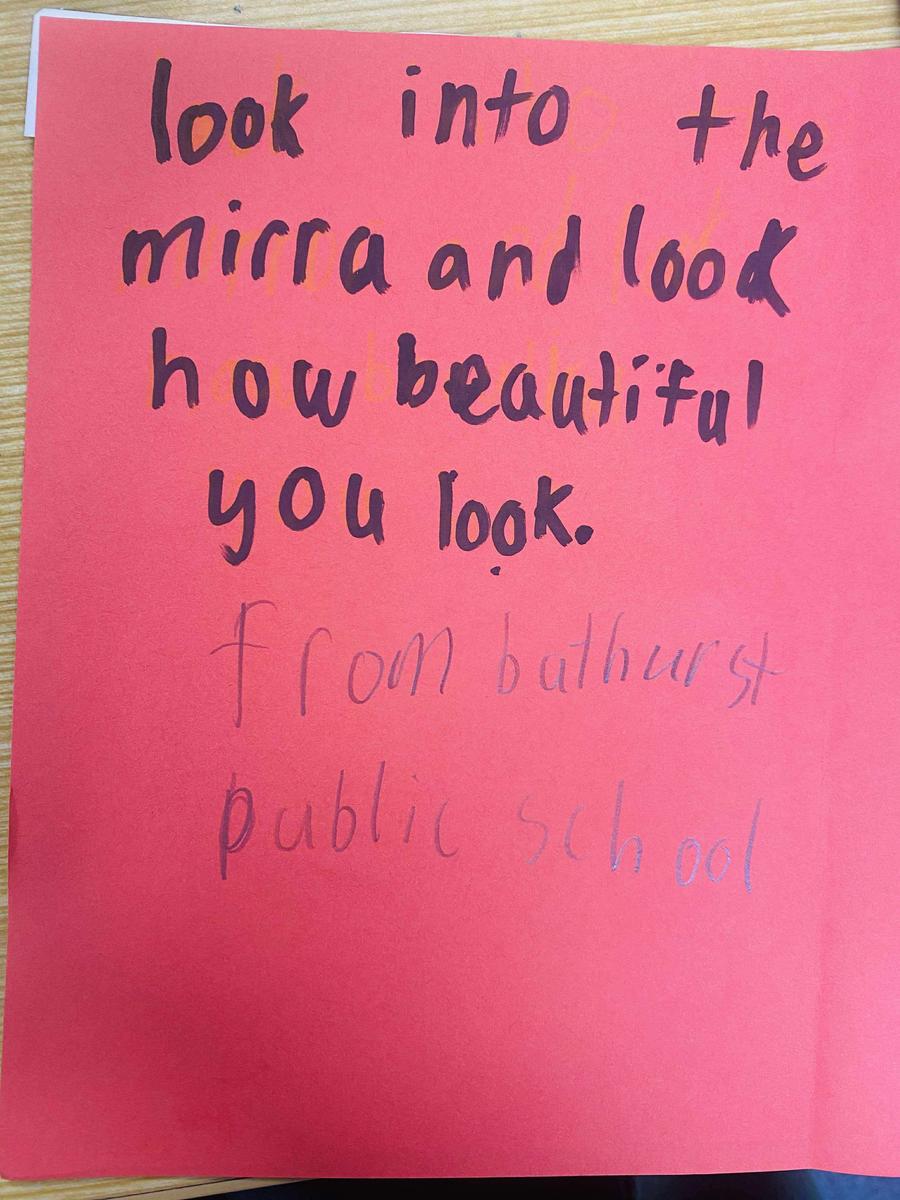 look into the
mirra and look
how beautiful
you look.
from bathurst
public school